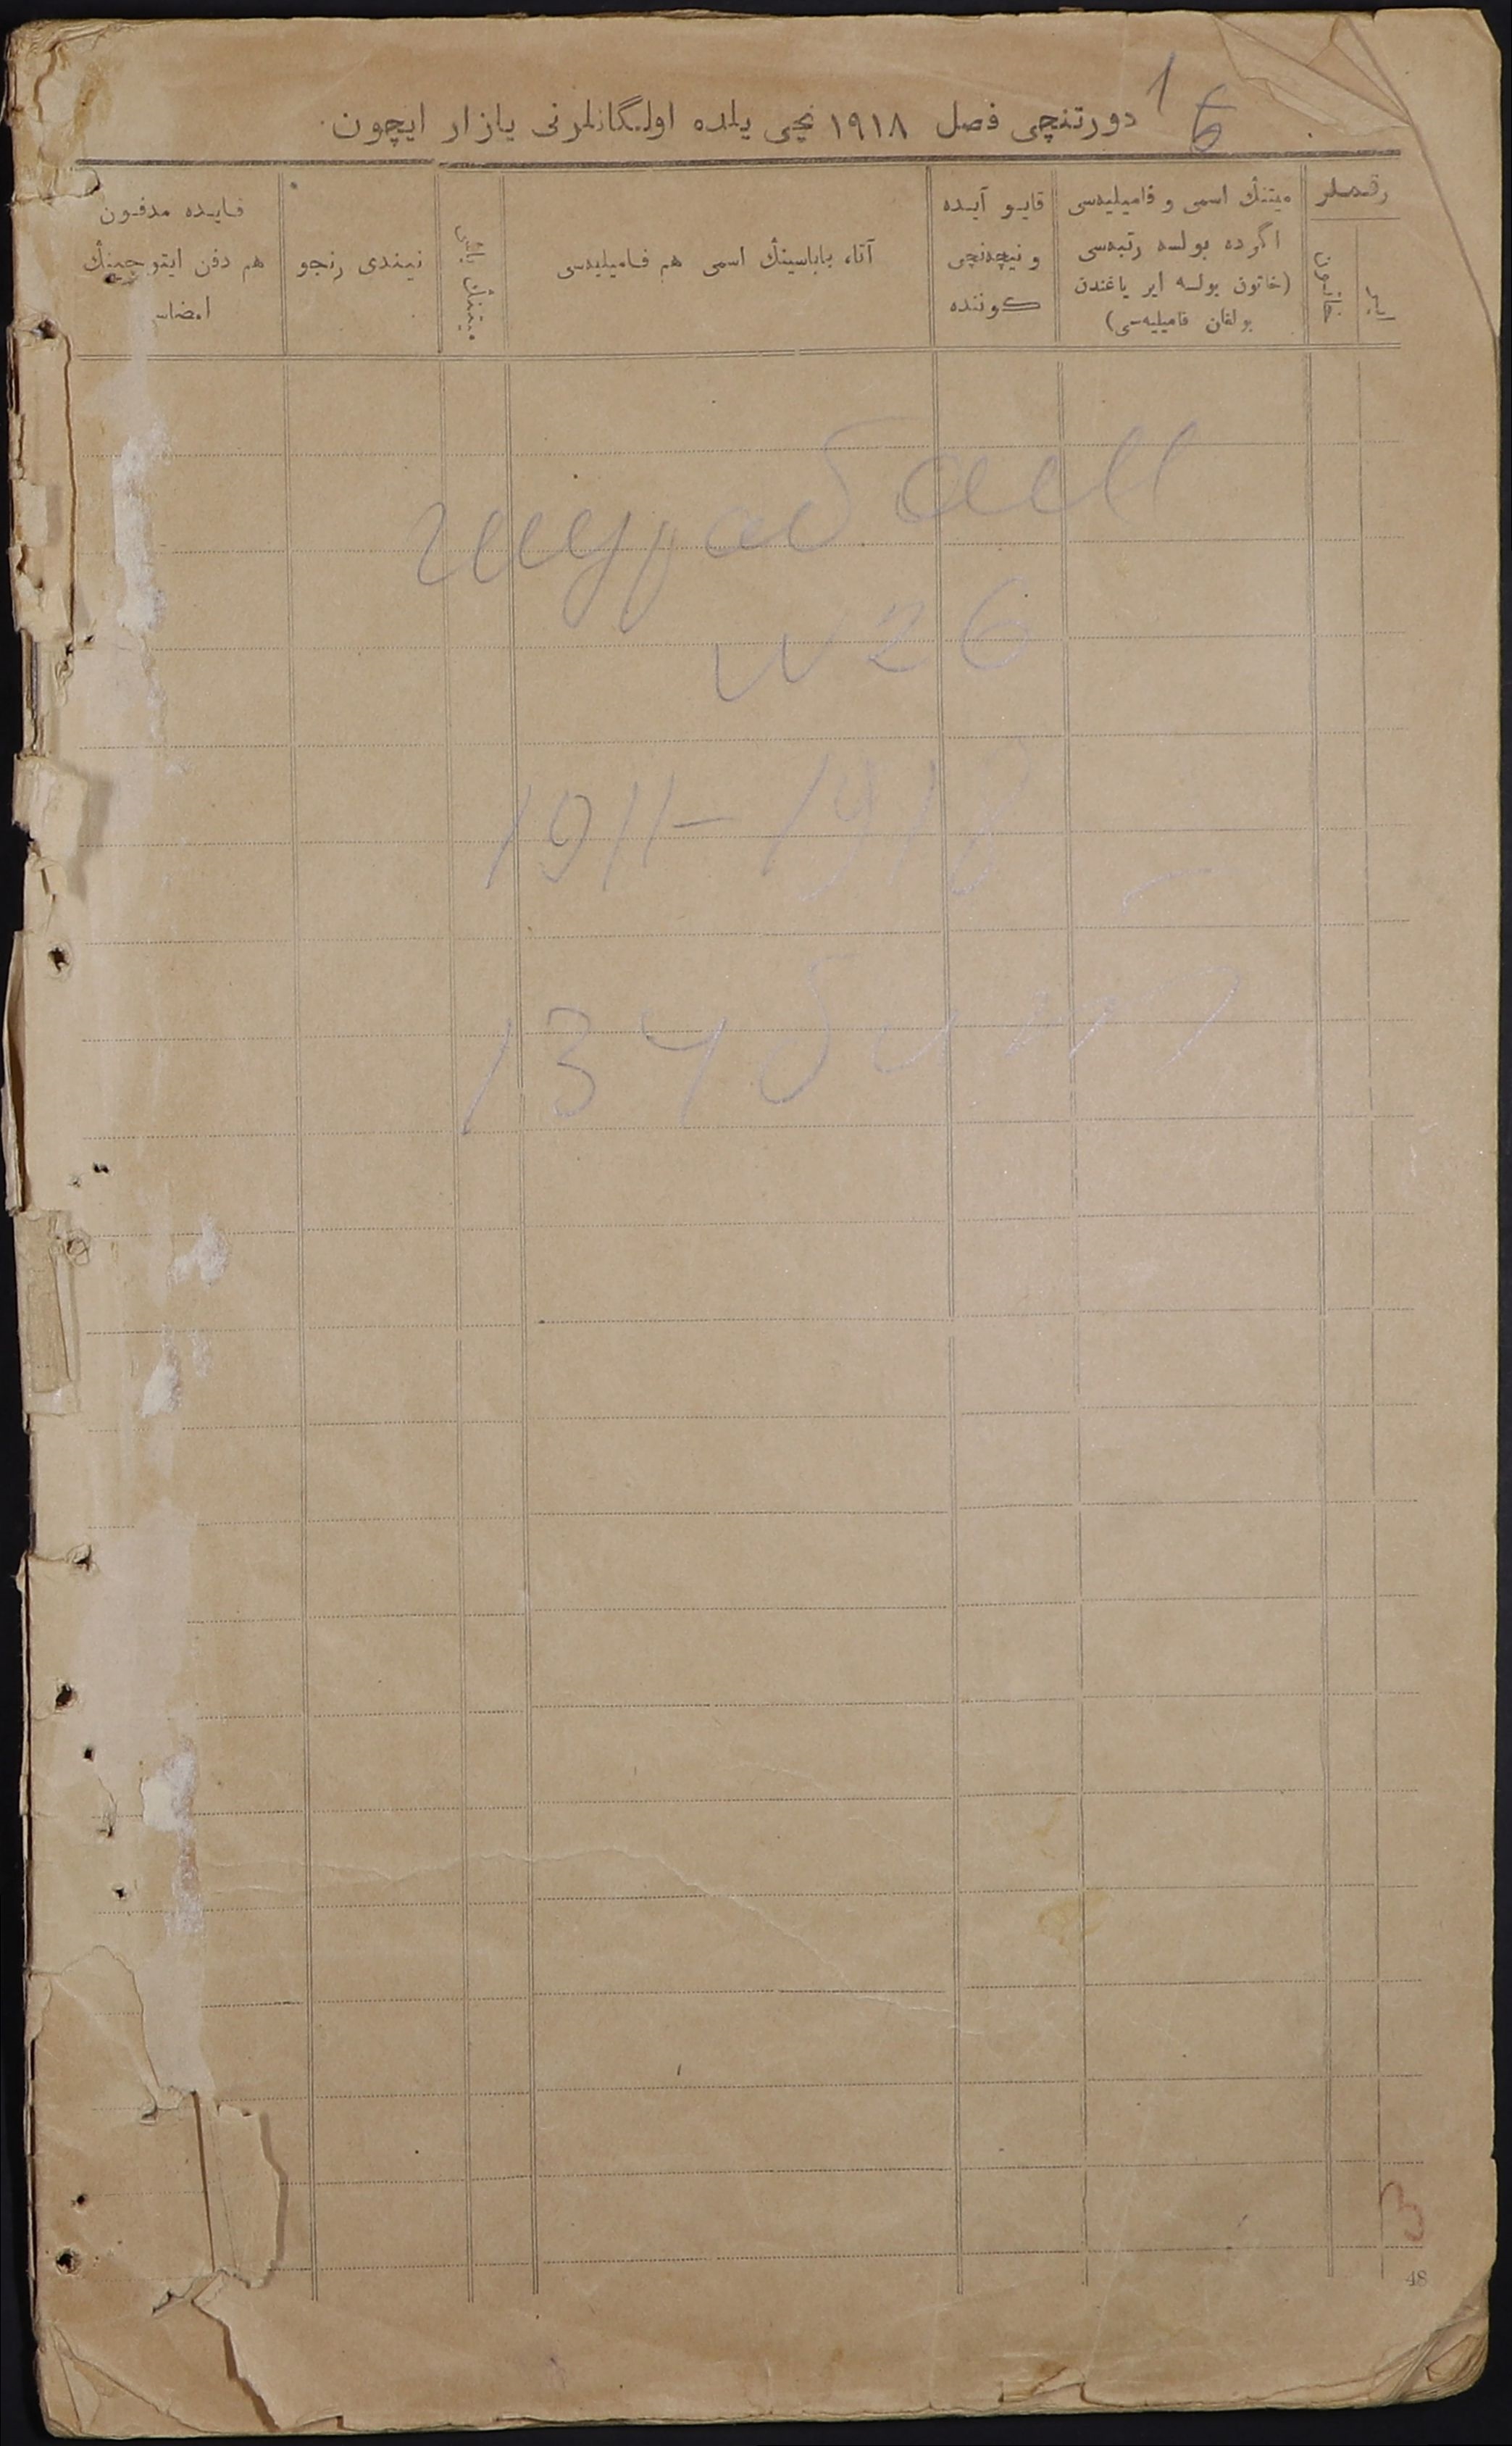 1
6
دورتنچی فصل ۱۹۱۸ نچی یلده اولگانلرنی یازار ایچون
رقملر
ایرلر
خاتون
میتنڭ اسمی و فامیلیه‌سی
اگرده بولسه رتبه‌سی
(خاتون بولسه ایر یاغندن
بولغان فامیلیه‌سی)
قایو آیده
و نیچه‌نچی
كوننده
آتا، باباسینڭ اسمی هم فامیلیه‌سی
میتنڭ یاشی
نیندی رنجو
قایده مدفون
هم دفن ایتوچینڭ
امضاسی
N26
1911-1918
134 бит
3
48